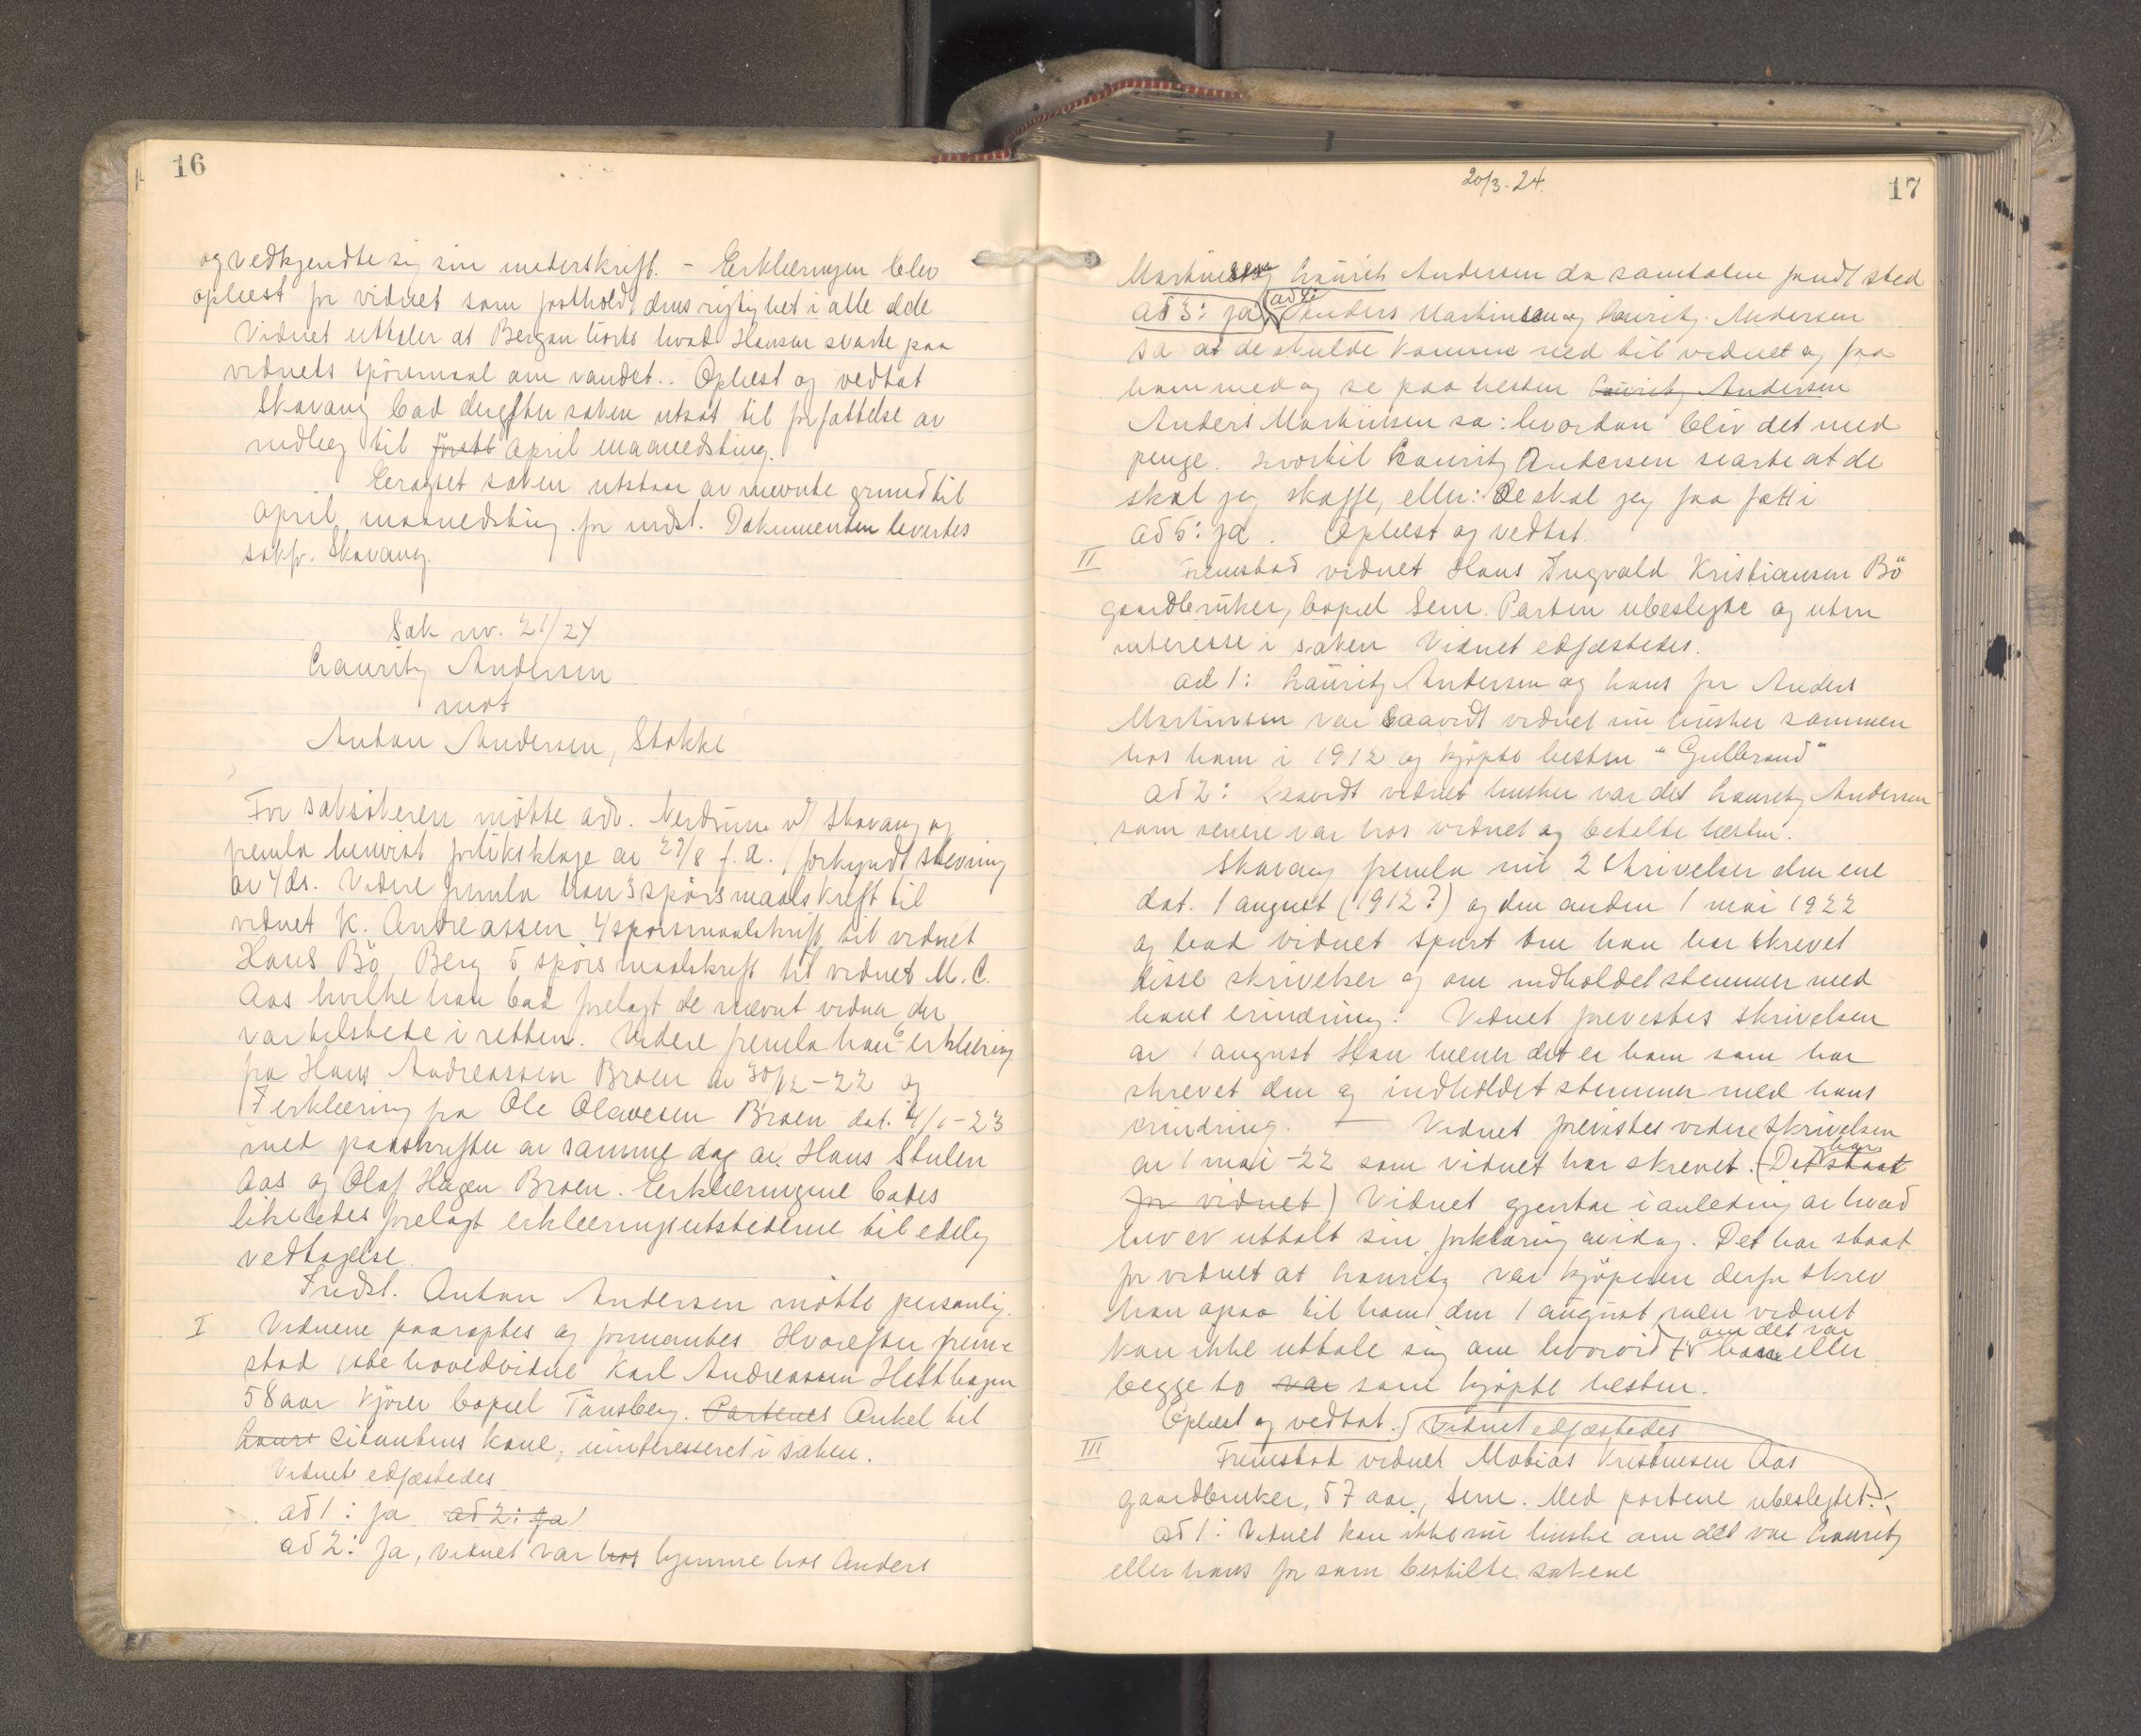 16
og vedkjendte sig sin underskrift. - Erklæringen blev
oplæst for vidnet som fastholdt dens rigtighet i alle dele
Vidnet uttaler at Bergan hørte hvad Hansen svarte paa
vidnets spörsmaal om vandet.. Oplæst og vedtat
Skavang bad derefter saken utsat til forfattelse av
indlæg til april maanedsting.
Eragtet saken utstaar av nævnte grund til
april maanedsting for indst. Dokumenterne levertes
sakf. Skavang.
Sak nr. 21/24
Lauritz Andersen
mot
Anton Andersen, Stokke
For saksökeren mötte adv. Nerdrum v/ Skavang og
fremla henvist forliksklage av 27/8 f. a. forkyndt stevning
av 4 ds. Videre fremla han 3 spörsmaalskrift til
vidnet K. Andreassen 4 spörsmaalskrift til vidnet
Hans Bö, Berg 5 spörsmaalskrift til vidnet M. C.
Aas hvilke han bad forelagt de nævnte vidner der
var tilstede i retten. Videre fremla han 6 erklæring
fra Hans Andreassen Broen av 30/12-22 og
7 erklæring fra Ole Olavesen Broen dat. 4/1-23
med paaskrifter av samme dag av Hans Stulen
Aas og Olaf Hagen Broen. Erklæringene bades
likeledes forelagt erklæringsutstederne til edelig
vedtagelse.
Indst. Anton Andersen mötte personlig.
I Vidnene paaroptes og formantes Hvorefter frem-
stod 1ste hovedvidne Karl Andreassen Hesthagen
58 aar kjörer bopæl Tönsberg. Partenes Onkel til
Laur citantens kone, uinteresseret i saken.
Vidnet edfæstedes
ad 1: ja ad 2: Ja
ad 2: Ja, vidnet var hos hjemme hos Anders
20/3-24.
17
Martinsen og Lauritz Andersen da samtalen fandt sted
ad 3: ja ad 4: Anders Martinsen og Lauritz Andersen
sa at de skulde komme ned til vidnet og faa
ham med og se paa hesten Lauritz Andersen
Anders Martinsen sa: hvordan bliv det med
penge. hvortil Lauritz Andersen svarte at de
skal jeg skaffe, eller: De skal jeg faa fatti
ad 5: ja. Oplæst og vedtat.
II Fremstod vidnet Hans Ingvald Kristiansen Bö
gaardbruker, bopæl Sem. Parten ubeslegtet og uten
interesse i saken Vidnet edfæstedes.
ad 1: Lauritz Andersen og hans far Anders
Martinsen var saavidt vidnet nu husker sammen
hos ham i 1912 og kjöpte hesten "Gulbrand"
ad 2: Saavidt vidnet husker var det Lauritz Andersen
som senere var hos vidnet og betalte hesten.
Skavang fremla nu 2 skrivelser den ene
dat. 1 august (1912?) og den anden 1 mai 1922
og bad vidnet spurt om han har skrevet
disse skrivelser og om indholdet stemmer med
hans erindring. Vidnet forevistes skrivelsen
av 1 august Han mener det er ham som har
skrevet den og indholdet stemmer med hans
erindring. - Vidnet forevistes videre skrivelsen
av 1 mai -22 som vidnet har skrevet. (Det har staat
for vidnet) Vidnet gjentar i anledning av hvad
her er uttalt sin forklaring av idag. Det har staat
for vidnet at Lauritz var kjöperen derfor skrev
han ogsaa til ham den 1 august, men vidnet
kan ikke uttale sig om hvorvidt om det var en eller
begge to var som kjöpte hesten.
Oplæst og vedtat. Vidnet edfæstedes
III Fremstod vidnet Mobias Kristensen Aas
gaardbruker, 57 aar, Sem. Med partene ubeslegtet.
ad 1: Vidnet kan ikke nu huske om det var Lauritz
eller hans far som bestilte sakene